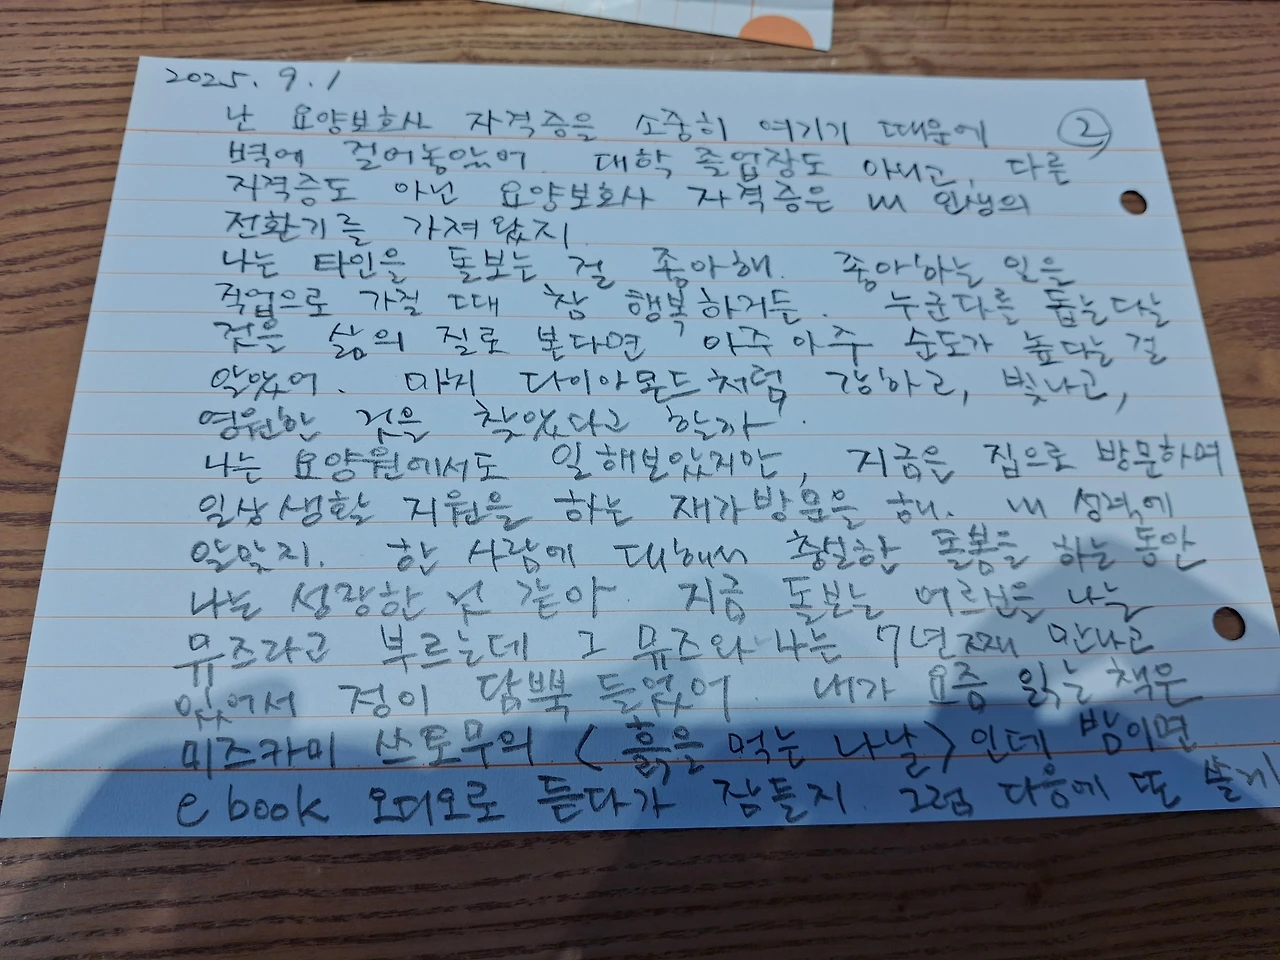 2025. 9. 1
②
난 요양보호사 자격증을 소중히 여기기 때문에
벽에 걸어놓았어. 대학 졸업장도 아니고, 다른
자격증도 아닌 요양보호사 자격증은 내 인생의
전환기를 가져왔지.
나는 타인을 돌보는 걸 좋아해. 좋아하는 일을
직업으로 가질 때 참 행복하거든. 누군다를 돕는다는
것을 삶의 질로 본다면 아주아주 순도가 높다는 걸
알았어. 마치 다이아몬드처럼 강하고, 빛나고,
영원한 것을 찾았다고 할까.
나는 요양원에서도 일해보았지만, 지금은 집으로 방문하며
일상생활 지원을 하는 재가방문을 해. 내 성격에
알맞지. 한 사람에 대해서 충실한 돌봄을 하는 동안
나는 성장한 것 같아. 지금 돌보는 어르신을 나는
뮤즈라고 부르는데 그 뮤즈와 나는 7년째 만나고
있어서 정이 담뿍 들었어. 내가 요즘 읽는 책은
미즈카미 쓰토무의 <흙을 먹는 나날>인데 밤이면
e book 오디오로 듣다가 잠들지. 그럼 다음에 또 쓸게